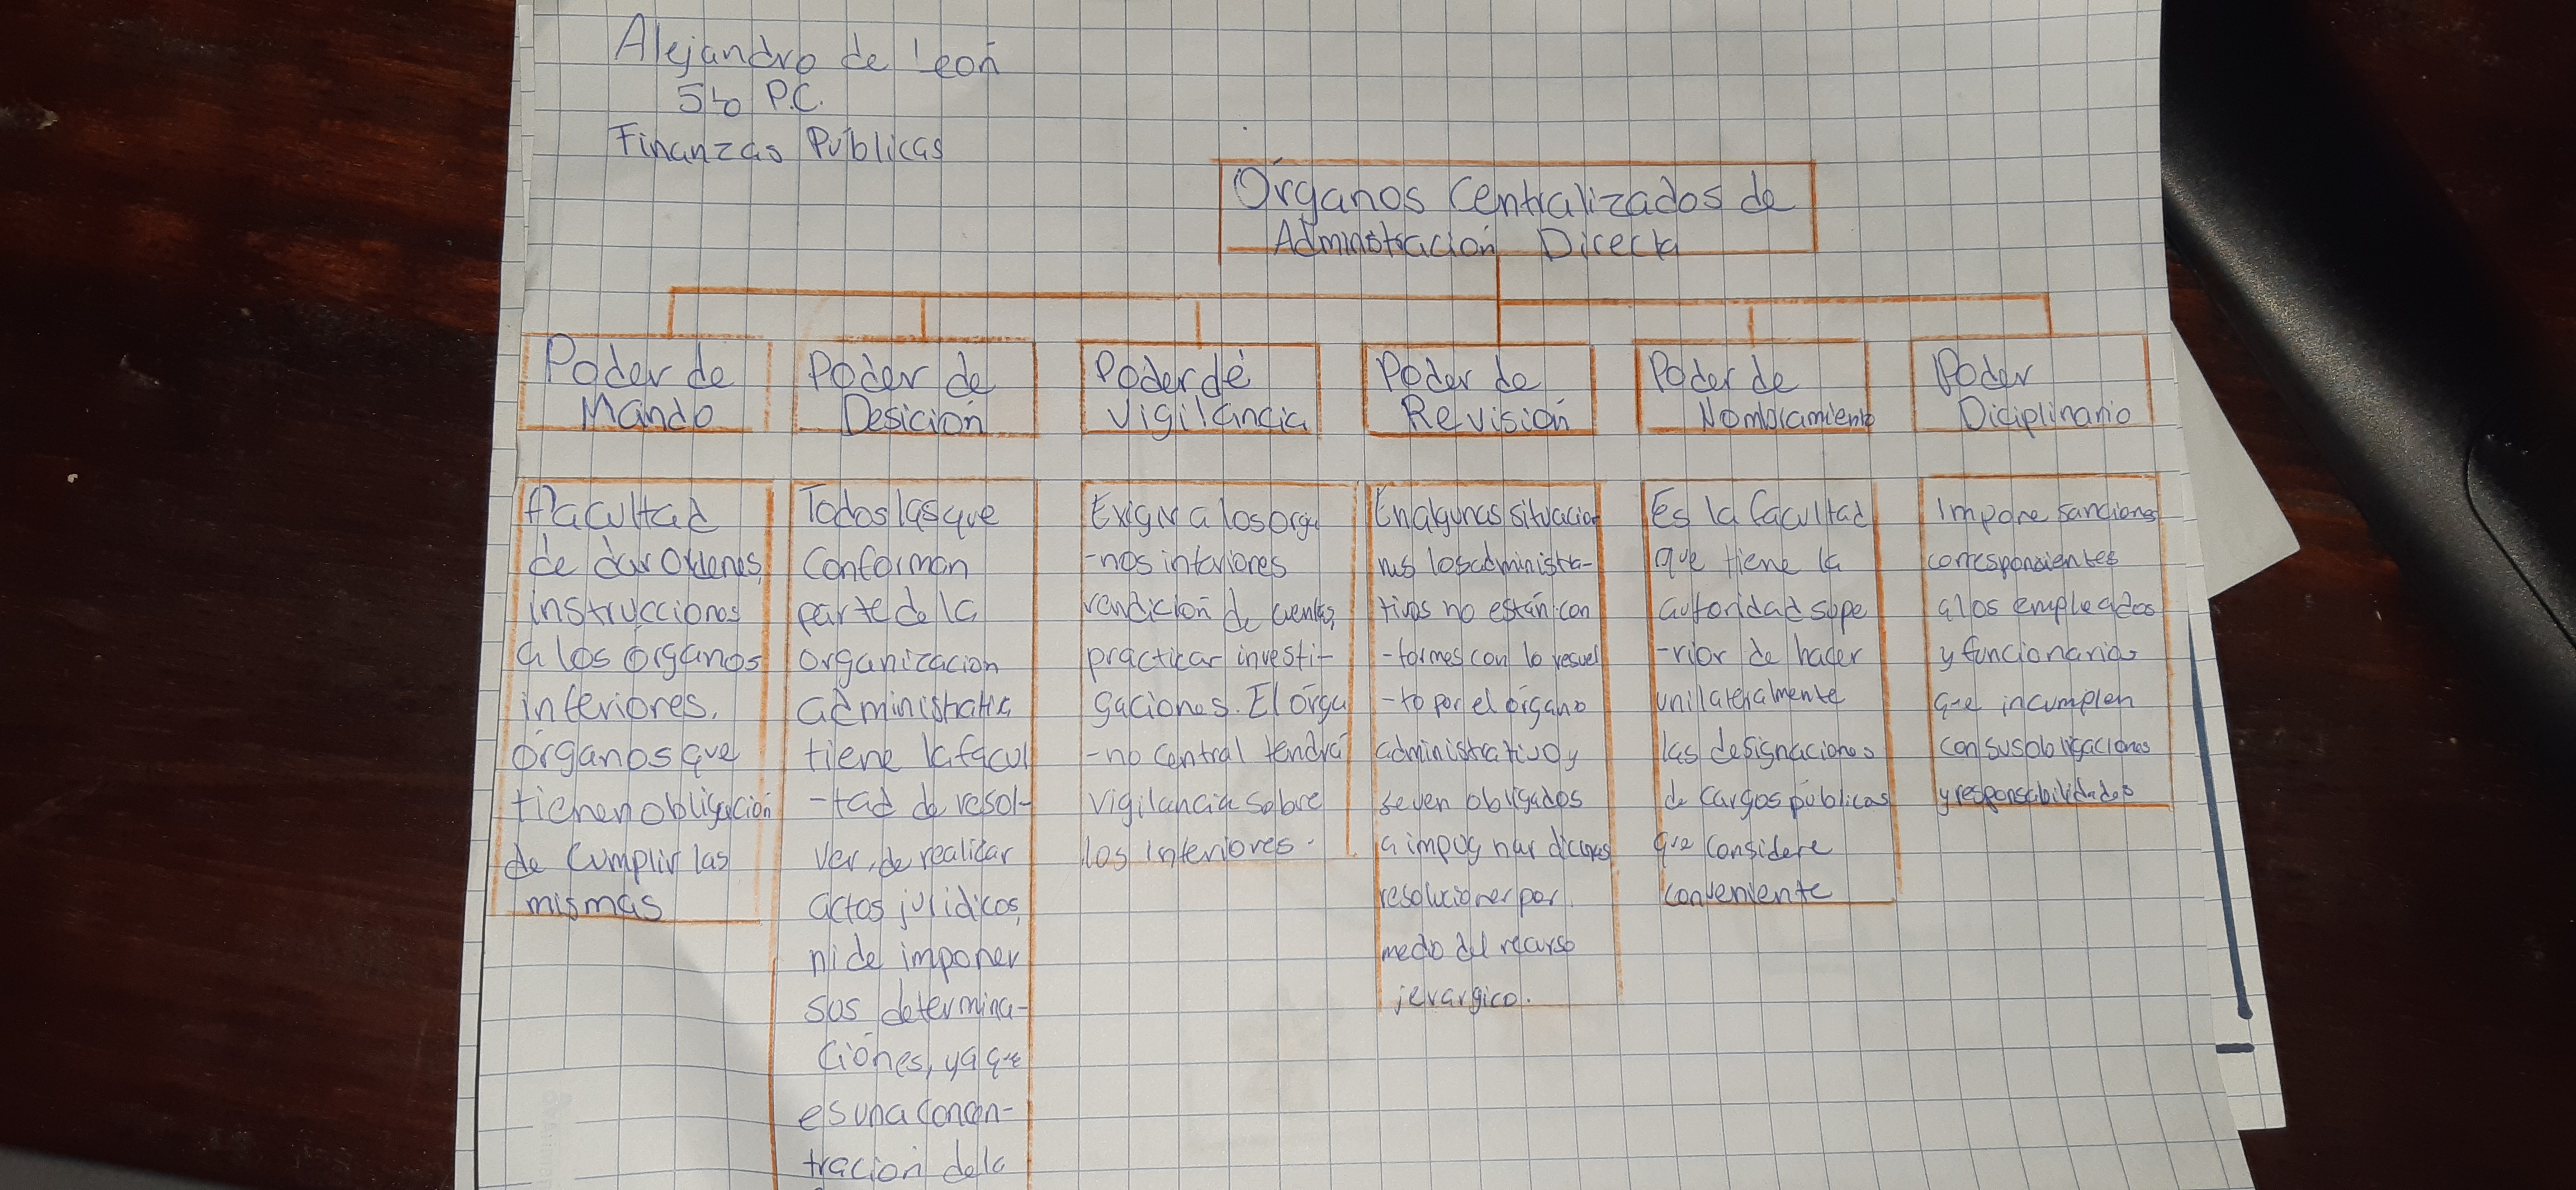 Alejandro de León
5to P.C.
Finanzas Públicas
Órganos Centralizados de
Adminstración Directa
Poder de
Mando
Poder de
Desición
Poder de
Vigilancia
Poder de
Revisión
Poder de
Nombramiento
Poder
Diciplinario
Facultad
de dar ordenes,
instrucciones
a los órganos
inferiores,
órganos que
tienen obligación
de cumplir las
mismas
Todos las que
conforman
parte de la
organización
administrativa
tiene la facul
-tad de resol-
ver, de realizar
actos jurídicos,
ni de imponer
sus determina-
ciones, ya que
es una concen-
tración de la
Exigir a los órga
-nos inferiores
rendición de cuentas,
practicar investi-
gaciones. El órga
-no central tendrá
vigilancia sobre
los inferiores.
En algunas situacio
nes los administra-
tivos no están con
-formes con lo resuel
-to por el órgano
administrativo y
se ven obligados
a impugnar dichas
resoluciones por
medo del recurso
jerárgico.
Es la facultad
que tiene la
autoridad supe
-rior de hacer
unilateralmente
las designaciones
de cargos públicos
que considere
conveniente
Impone sanciones
correspondientes
a los empleados
y funcionarios
que incumplen
con sus obligaciones
y responsabilidades